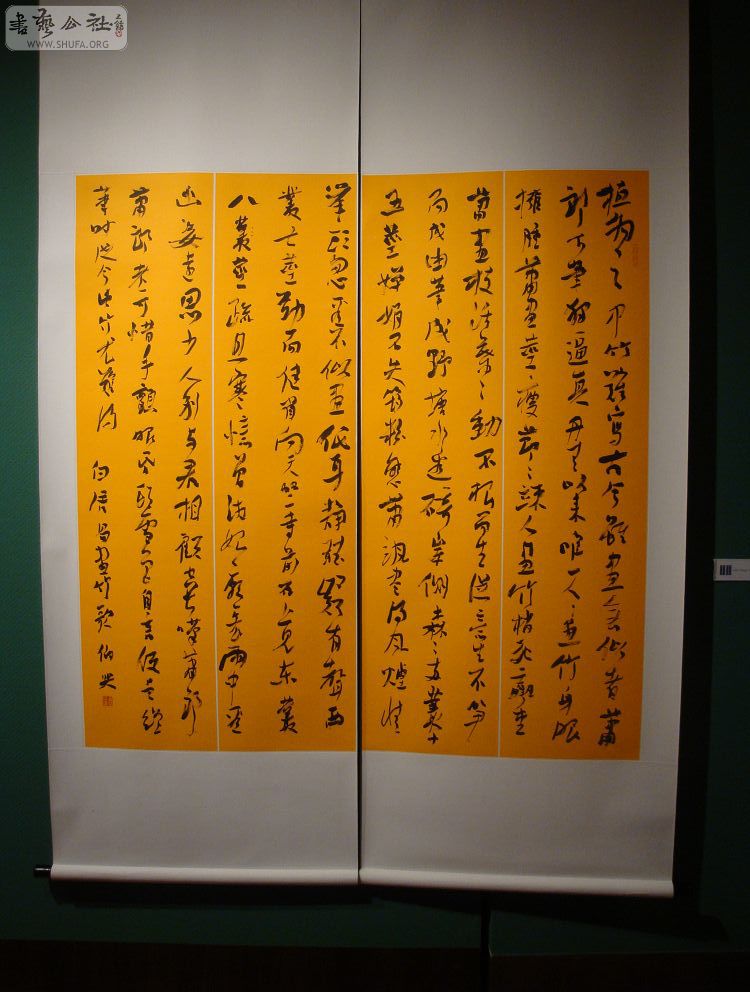 書藝公社
WWW.SHUFA.ORG
植物之中竹難寫古今雖畫無似者蕭
郎下筆獨逼真丹青以來唯一人人畫竹身肥
擁腫蕭畫莖瘦節々竦人畫竹梢死羸垂
蕭畫枝活葉々動不根而生從意生不笋
而成由筆成野塘水邊碕岸側森々兩叢十
五莖嬋娟不失筠粉態蕭颯盡得風煙情
舉頭忽看不似畫低耳靜聽疑有聲西
叢七莖勁而健省向天竺寺前石上見東叢
八叢莖疏且寒憶曾湘妃廟裏雨中看
幽姿遠思少人別與君相顧空長嘆蕭郎
蕭郎老可惜手顫眼昏頭雪色自言便是絕
筆時從今此竹尤難得 白居易畫竹歌 伯